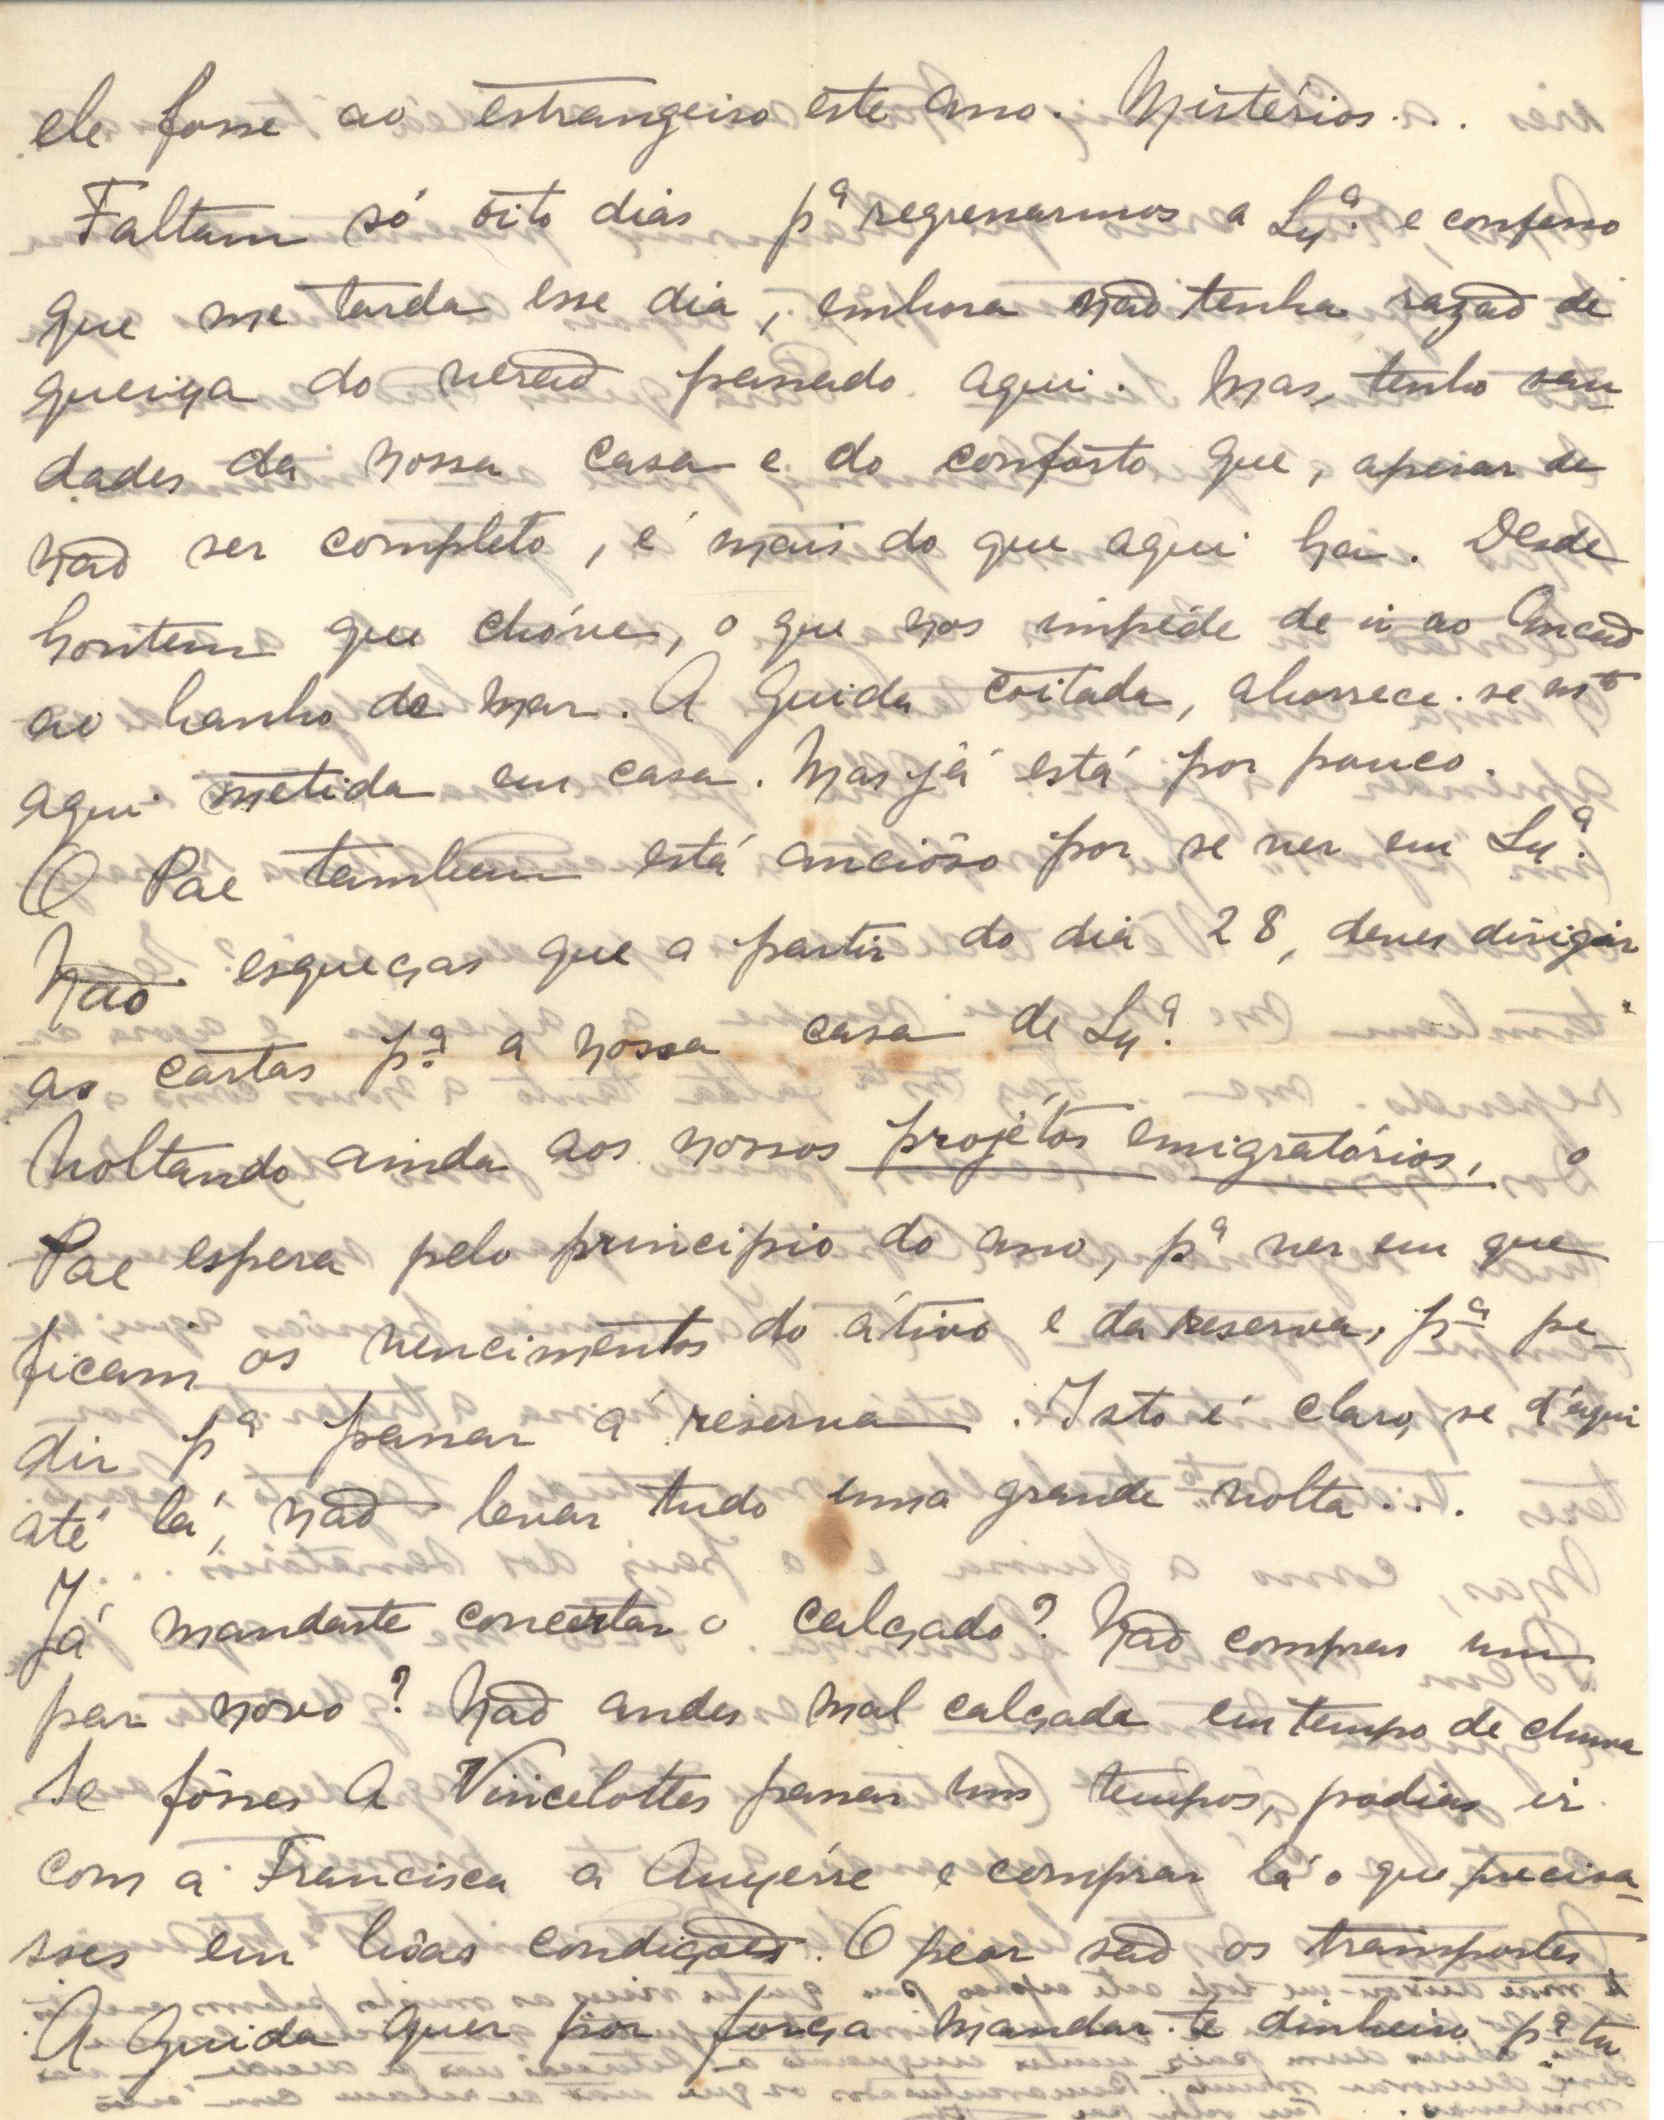 ele fosse ao estrangeiro este ano. Mistérios...
Faltam só oito dias pª regressarmos a Lxª. e confesso
que me tarda esse dia, embora não tenha razão de
queixa do verão passado aqui. Mas, tenho sau-
dades da nossa casa e do confôrto que, apesar de
não ser completo, é mais do que aqui ha. Desde
hontem que chóve, o que nos impéde de ir ao Ancão
ao banho de mar. A Guida coitada, aborrece-se mtº
aqui metida em casa. Mas já está por pouco.
O Pae tambem está ancióso por se ver em Lxª.
Não esqueças que a partir do dia 28, deves dirigir
as cartas pª a nossa casa de Lxª.
Voltando ainda aos nossos projétos emigratórios, o
Pae espera pelo principio do ano, pª ver em que
ficam os vencimentos do átivo e da reserva, pª pe-
dir pª passar á reserva. Isto é claro, se d'aqui
até lá, não levar tudo uma grande volta...
Já mandaste concertar o calçado? Não compras um
par novo? Não andes mal calçada em tempo de chuva
Se fôsses a Vincelottes passar uns tempos, podias ir
com a Francisca a Auxérre e comprar lá o que precisa-
sses em bôas condições. O peor são os transportes
A Guida quer por força mandar-te dinheiro pª tu